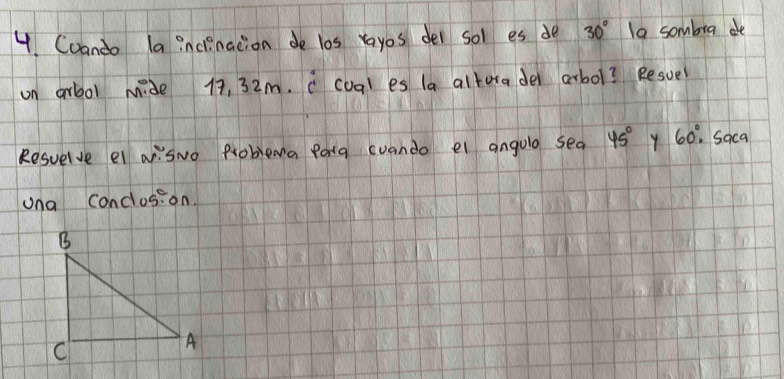 4. Cuando la inclinación de los rayos del sol es de 30° la sombra de
un arbol mide 17,32m. ¿ cual es la altura del arbol? Resuel
Resuelve el mismo problema para cuando el angulo sea 45° y 60°. saca
una conclusion.
B
C A